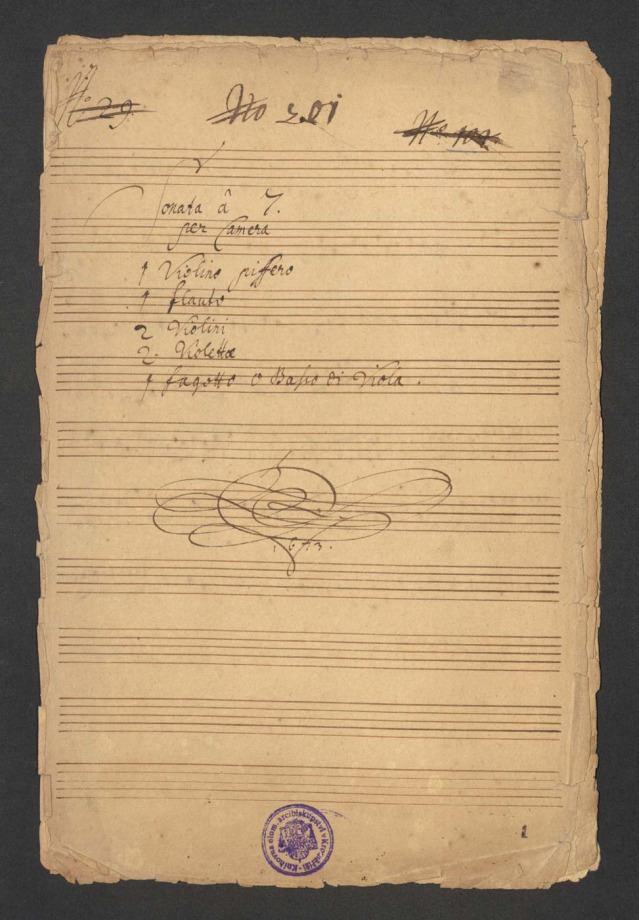 No 29
No 201
No 101
Sonata â 7.
per Camera
1 Violino piffero
1 flauto
2 Violini
2. Violettæ
1 fagotto o Basso di Viola.
1673.
Knihovna olom. arcibiskupství v Kroměříži
1